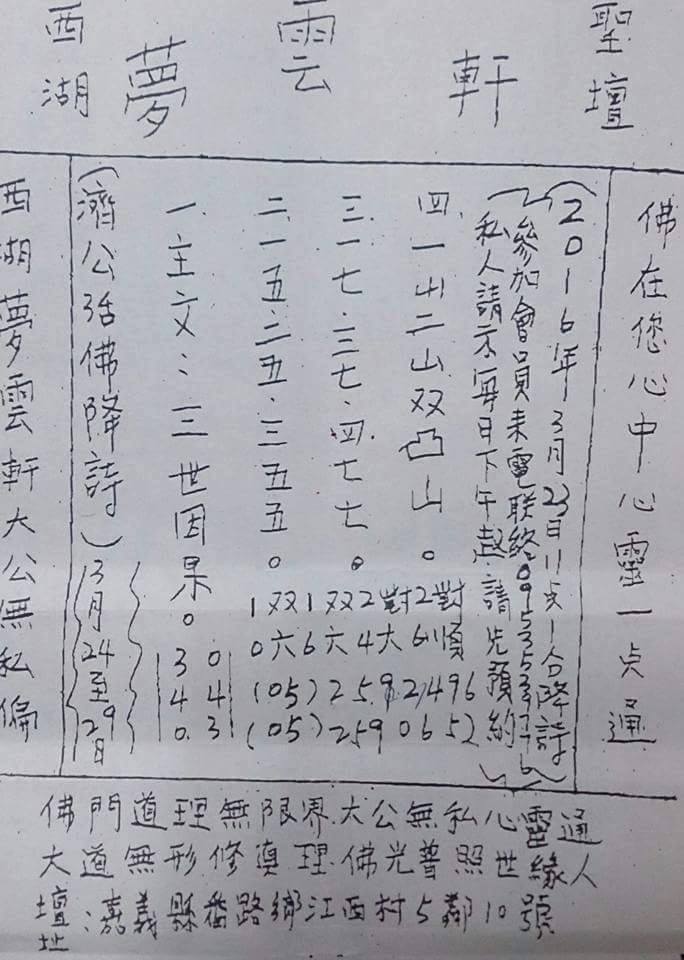 西湖 夢雲軒 聖壇
西湖夢雲軒大公無私偏
(濟公活佛降詩) (3月24至29日)
一.主文:三世因果。
3 0
4 4
0. 3
二.一五.二五.三五五。
三.一七.三七.四七七。
四.一山二山双凸山。
1双1双2對2對
0六6六4大6順
(05)259 2,496
(05)259 0652
私人請示每日下午恭請先預約
參加會員來電联絡
(2016年3月23日11点1分降詩)
佛在您心中心靈一点通
佛門道理無限界.大公無私心靈通
大道無形修真理.佛光普照世緣人
壇址:嘉義縣番路鄉江西村5鄰10號